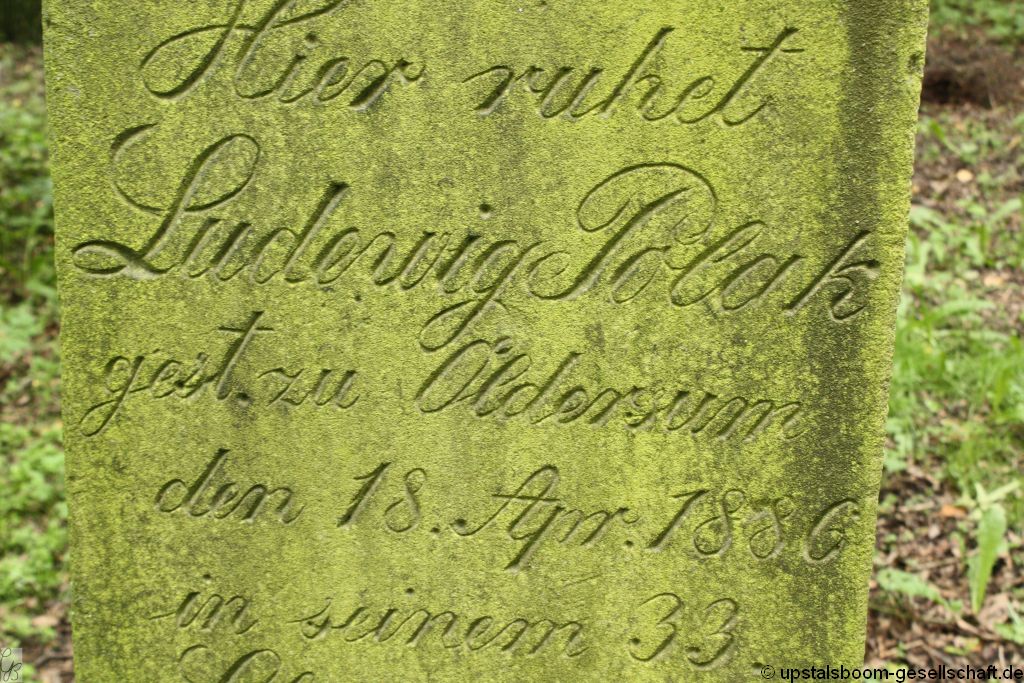 Hier ruhet
Ludewig Polak
gest. zu Oldersum
den 18. Apr. 1886
in seinem 33.
© upstalsboom-gesellschaft.de